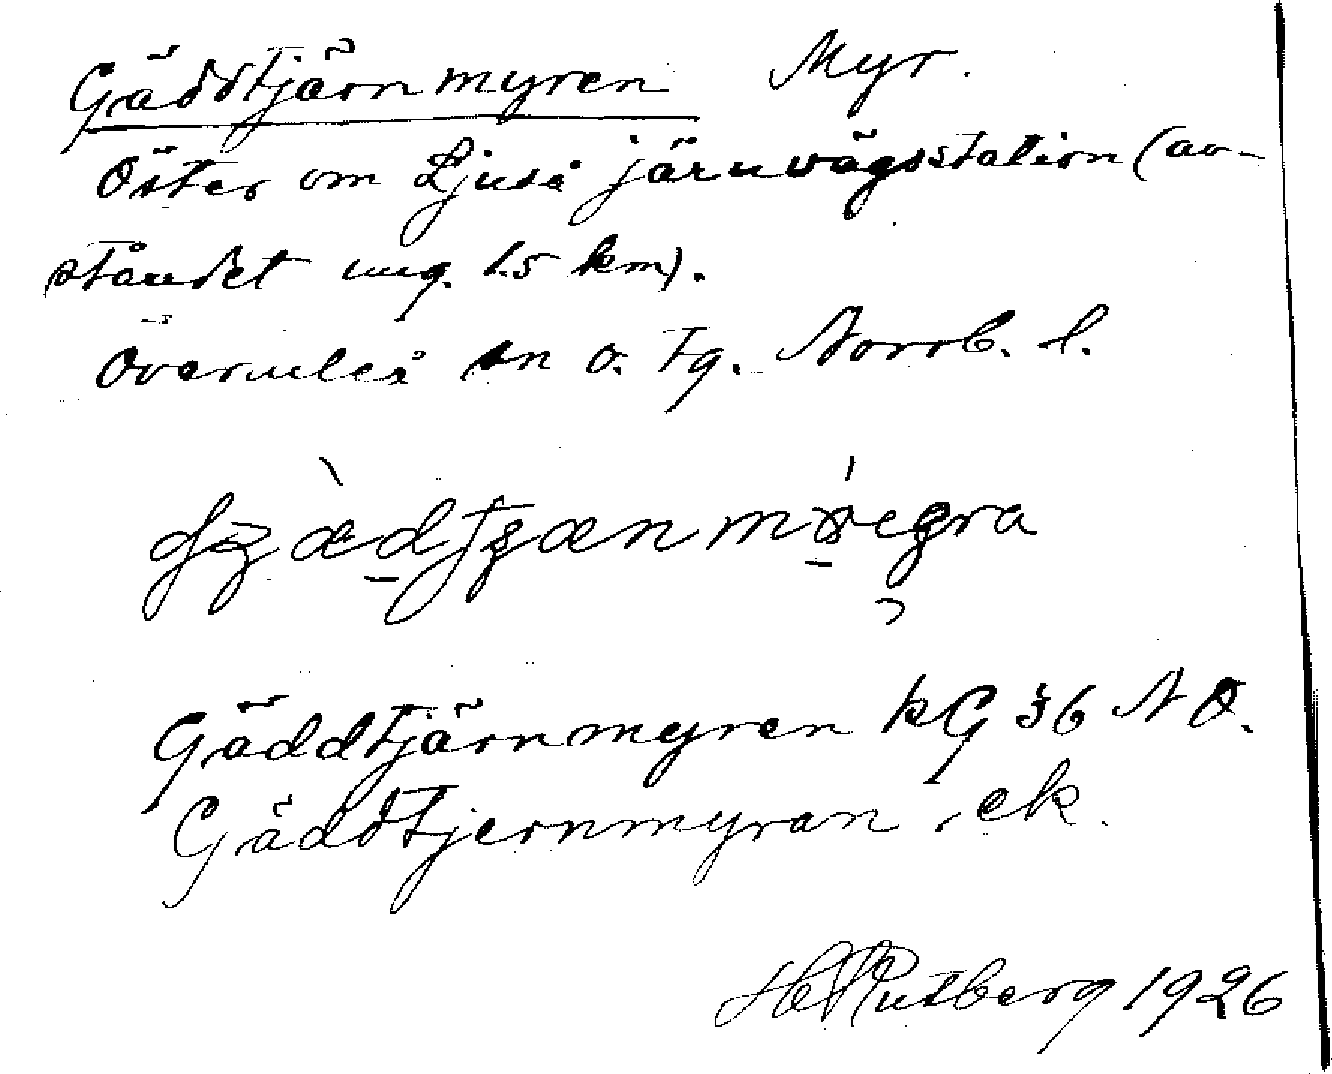 Gäddtjärnmyren Myr.
Öster om Ljuså järnvägsstation (av-
ståndet ung. 1.5 km).
Överuleå sn o. tg. Norrb. l.
Gäddtjärnmyren kG 36 NO.
Gäddtjernmyran, ek.
H Rutberg 1926